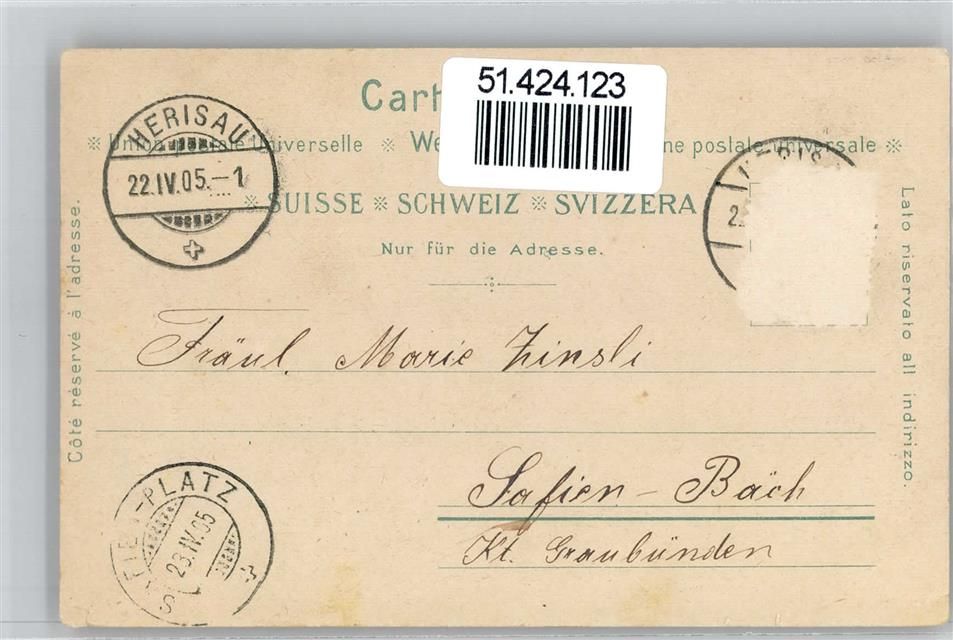 51.424.123
Cart
HERISAU
22.IV.05.–1
Union postale universelle ※ We ne postale universelle ※
※ SUISSE ※ SCHWEIZ ※ SVIZZERA
Nur für die Adresse.
Côté réservé à l'adresse.
Lato riservato all indirizzo.
Fräul. Marie Zinsli
Safien - Bäch
Kt. Graubünden
-PLATZ
23.IV.05